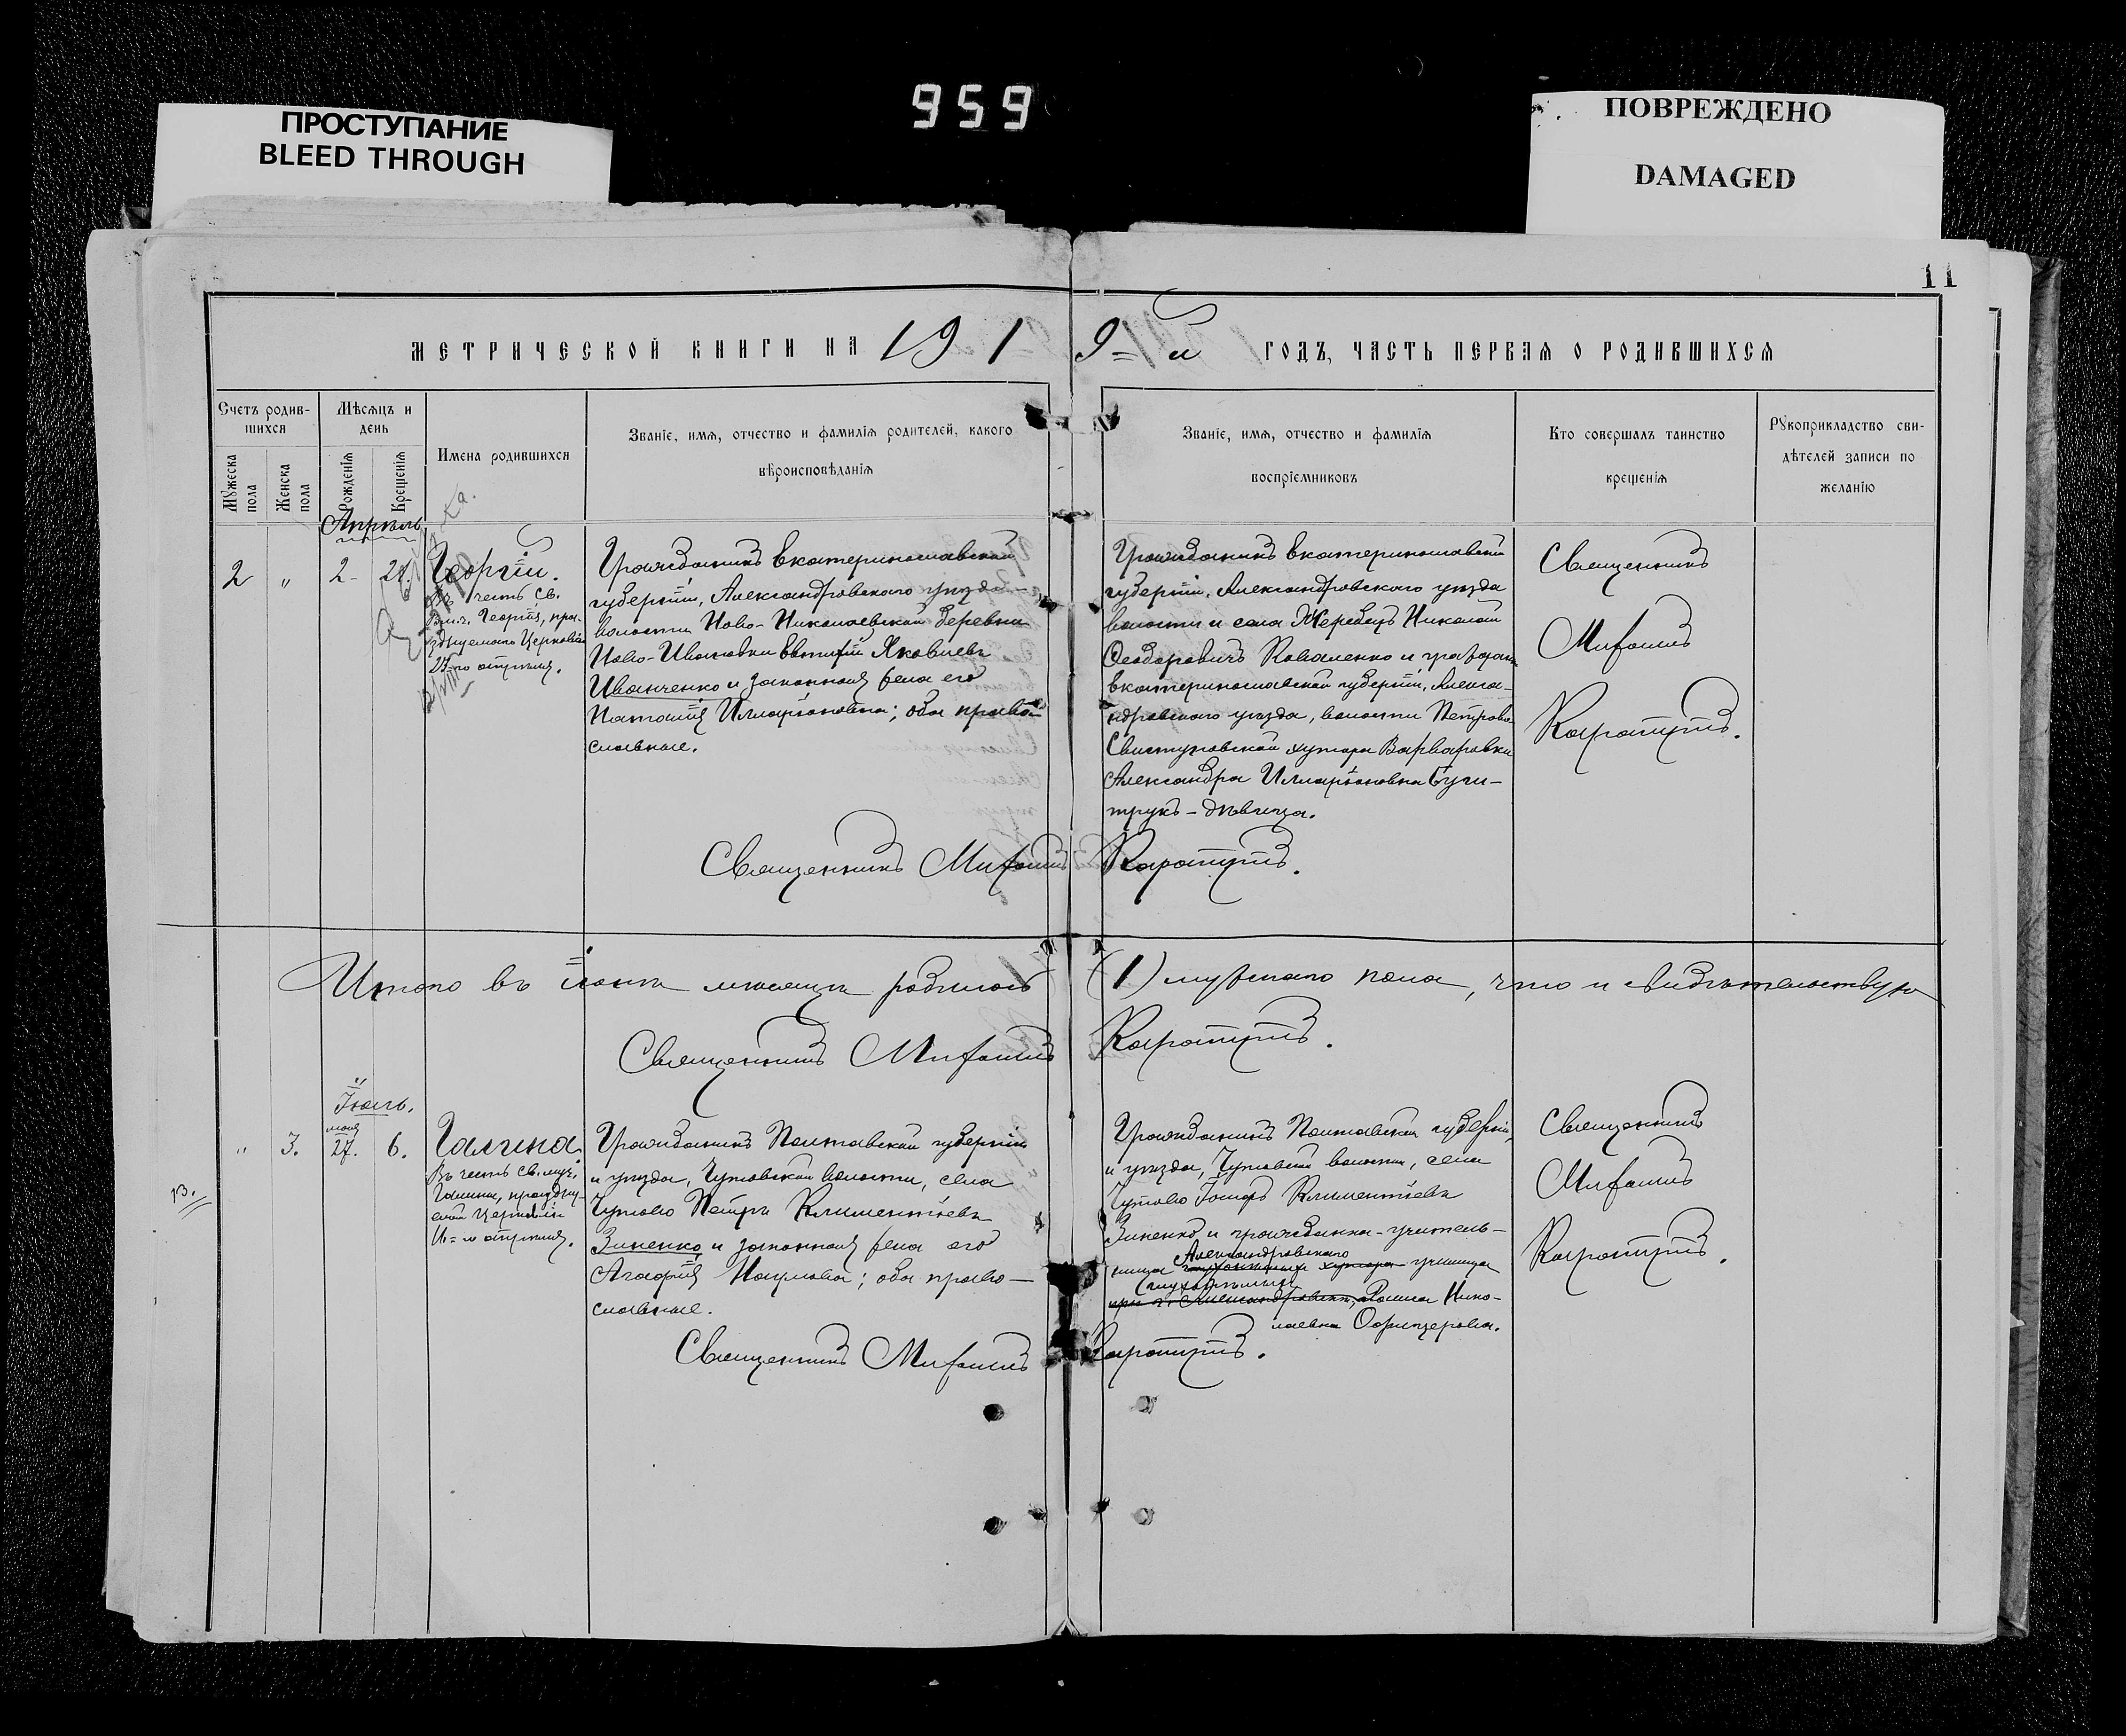 959
ПРОСТУПАНИЕ
BLEED THROUGH
ПОВРЕЖДЕНО
DAMAGED
11
МЕТРИЧЕСКОЙ КНИГИ НА 191 9=й ГОДЪ, ЧАСТЬ ПЕРВАЯ О РОДИВШИХСЯ
Счетъ родив-
шихся
Мужеска пола
Женска пола
Мѣсяцъ и
день
Рожденія
Крещенія
Имена родившихся
Званіе, имя, отчество и фамилія родителей, какого
вѣроисповѣданія
Званіе, имя, отчество и фамилія
воспріемниковъ
Кто совершалъ таинство
крещенія
Рукоприкладство сви-
дѣтелей записи по
желанію
Апрѣль
2 " 2-
Георгій.
Въ честь Св.
Влмч. Георгія, пра-
зднуемаго Церковію
23-го апрѣля.
Гражданинъ Екатеринославской
губерніи, Александровскаго уѣзда
волости Ново-Николаевской деревни
Ново-Ивановки Евтихій Яковлевъ
Иванченко и законная жена его
Наталія Илларіоновна; оба право-
славные.
Гражданинъ Екатеринославской
губерніи, Александровскаго уѣзда
волости и села Жеребецъ Николай
Ѳеодоровичъ Коваленко и граждан.
Екатеринославской губерніи, Алекса-
ндровскаго уѣзда, волости Петрово-
Свистуновской хутора Варваровки
Александра Илларіоновна
- дѣвица.
Священникъ
Священникъ
Итого въ мѣсяцѣ родилось (1) мужскаго пола, что и свидѣтельствую
Священникъ
Іюль.
13.
" 3. мая 27. 6.
Галина.
Въ честь св. муч.
Галины, праздну-
емой Церковію
16=го апрѣля.
Гражданинъ Полтавской губерніи
и уѣзда, Чутовской волости, села
Чутово Петръ Климентіевъ
Зиненко и законная жена его
Агафія Наумова; оба право-
славные.
Гражданинъ Полтавской губерніи,
и уѣзда, Чутовской волости, села
Чутово Іосифъ Климентіевъ
Зиненко и гражданка-учитель-
Александровскаго
ница хутора училища
глухонѣмыхъ
Раиса Нико-
лаевна Офицерова.
Священникъ
Священникъ